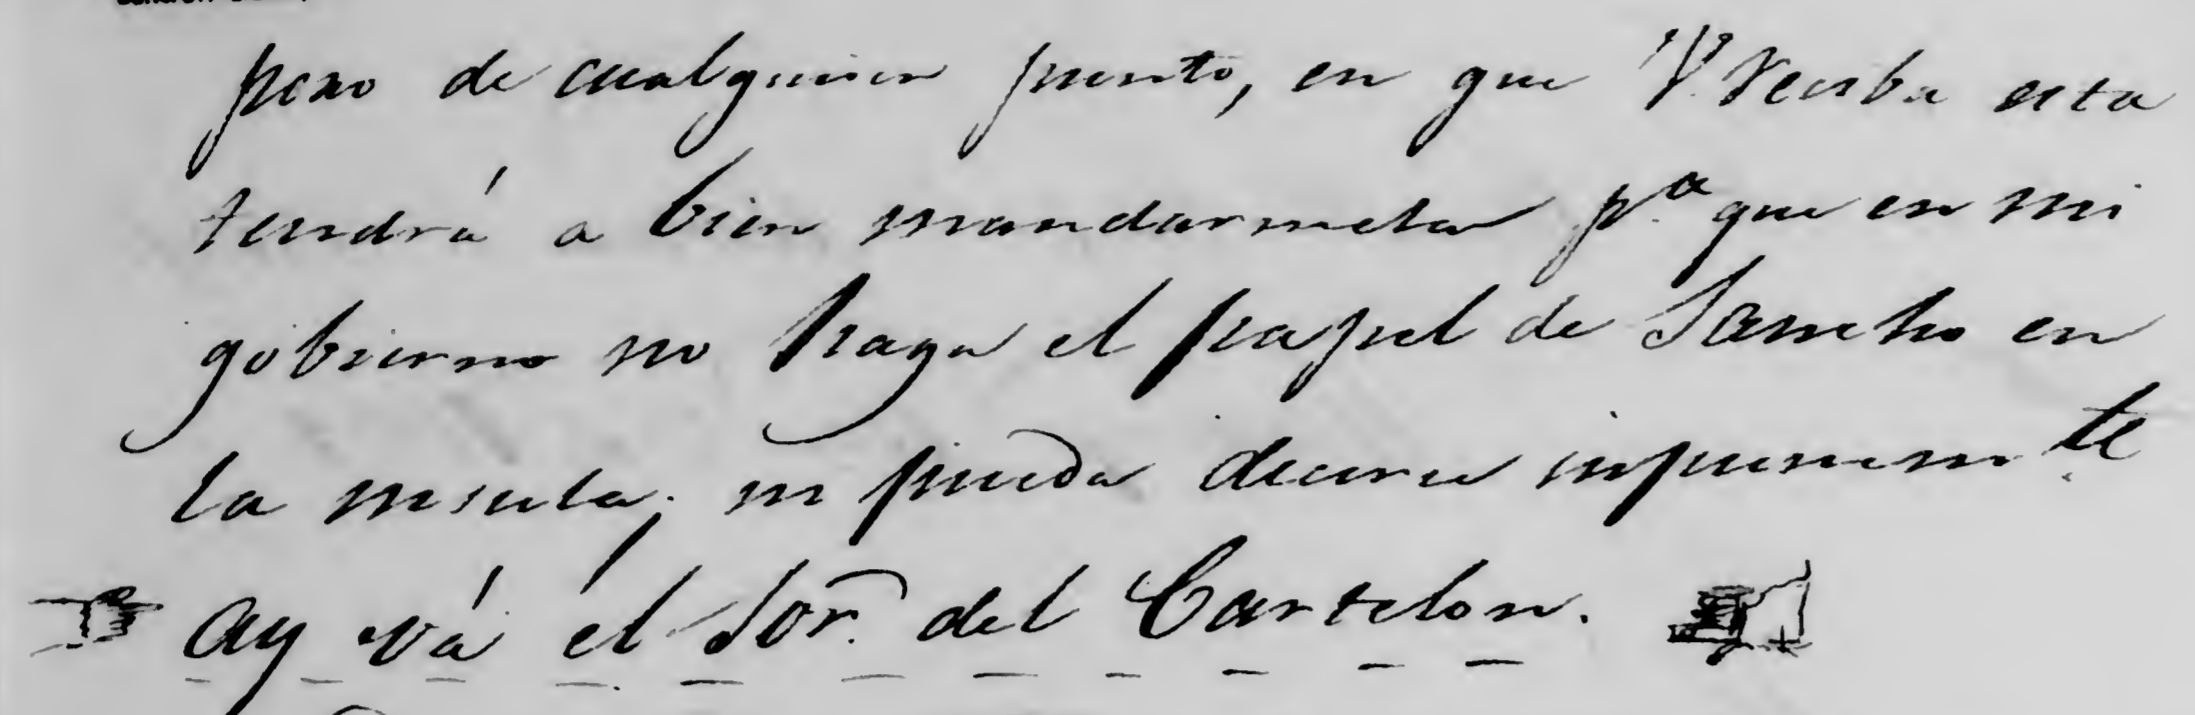 pero de cualquier punto, en que V. reciba esta
tendrá a bien mandarmela p.a que en mi
gobierno no haga el papel de Sancho en
la insula; ni pueda decirse inpunemte
ay vá él Sor. del Cartelon.